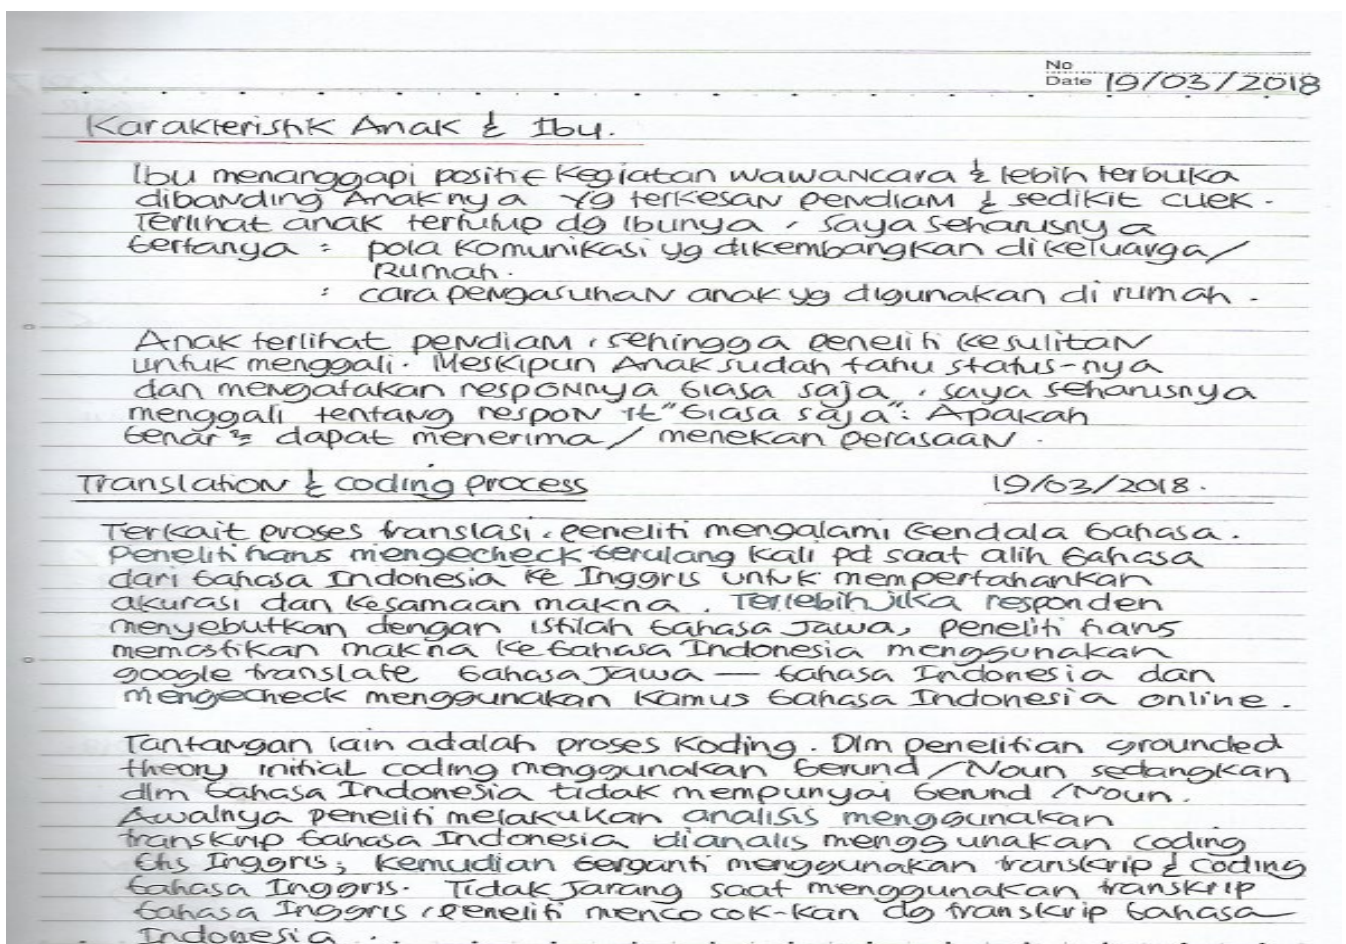 No
Date 19/03/2018
Karakteristik Anak & Ibu.
Ibu menanggapi positif kegiatan wawancara & lebih terbuka
dibanding Anaknya yg terkesan pendiam & sedikit cuek.
Terlihat anak tertutup dg Ibunya, saya seharusnya
bertanya : pola komunikasi yg dikembangkan di keluarga/
Rumah.
: cara pengasuhan anak yg digunakan di rumah.
Anak terlihat pendiam, sehingga peneliti kesulitan
untuk menggali. Meskipun Anak sudah tahu status-nya
dan mengatakan responnya biasa saja, saya seharusnya
menggali tentang respon it "biasa saja": Apakah
benar² dapat menerima / menekan perasaan.
Translation & coding process 19/03/2018.
Terkait proses translasi, peneliti mengalami kendala bahasa.
Peneliti harus mengecheck berulang kali pd saat alih bahasa
dari bahasa Indonesia ke Inggris untuk mempertahankan
akurasi dan kesamaan makna. Terlebih jika responden
menyebutkan dengan istilah bahasa Jawa, peneliti harus
memastikan makna ke bahasa Indonesia menggunakan
google translate bahasa Jawa — bahasa Indonesia dan
mengecheck menggunakan kamus bahasa Indonesia online.
Tantangan lain adalah proses koding. Dlm penelitian grounded
theory initial coding menggunakan Gerund / Noun sedangkan
dlm bahasa Indonesia tidak mempunyai Gerund / Noun.
Awalnya peneliti melakukan analisis menggunakan
transkrip bahasa Indonesia dianalis menggunakan coding
bhs Inggris; kemudian berganti menggunakan transkrip & coding
bahasa Inggris. Tidak jarang saat menggunakan transkrip
bahasa Inggris, peneliti mencocok-kan dg transkrip bahasa
Indonesia.